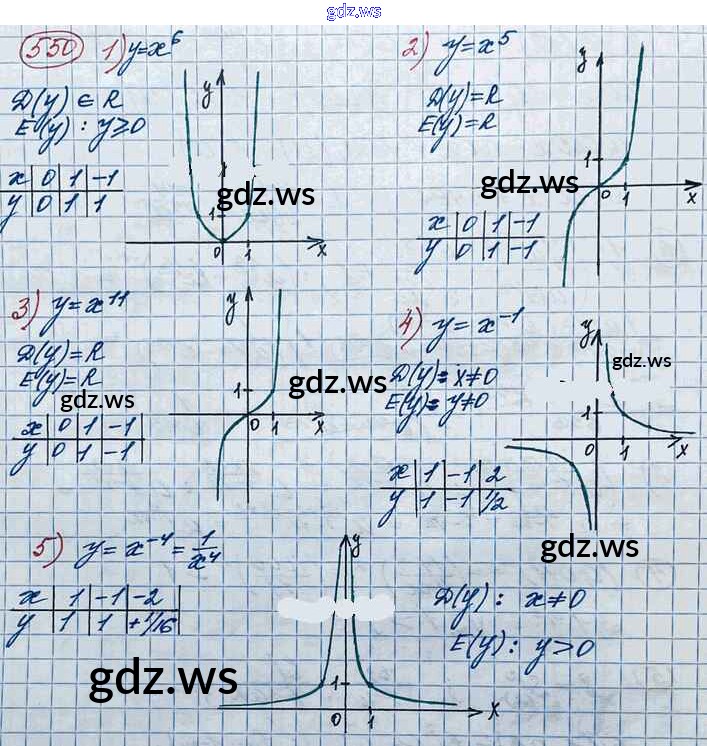 gdz.ws
550 1) y=x⁶
D(y) ∈ R
E(y) : y≥0
x | 0 | 1 | -1
y | 0 | 1 | 1
y
1
0 1 x
gdz.ws
2) y=x⁵
D(y)=R
E(y)=R
x | 0 | 1 | -1
y | 0 | 1 | -1
y
1
0 1 x
gdz.ws
3) y=x¹¹
D(y)=R
E(y)=R
gdz.ws
x | 0 | 1 | -1
y | 0 | 1 | -1
y
1
0 1 x
gdz.ws
4) y=x⁻¹
D(y)= x≠0
E(y)= y≠0
x | 1 | -1 | 2
y | 1 | -1 | 1/2
y
gdz.ws
1
0 1 x
gdz.ws
5) y=x⁻⁴=1/x⁴
x | 1 | -1 | -2
y | 1 | 1 | +1/16
gdz.ws
y
1
0 1 x
D(y): x≠0
E(y): y>0